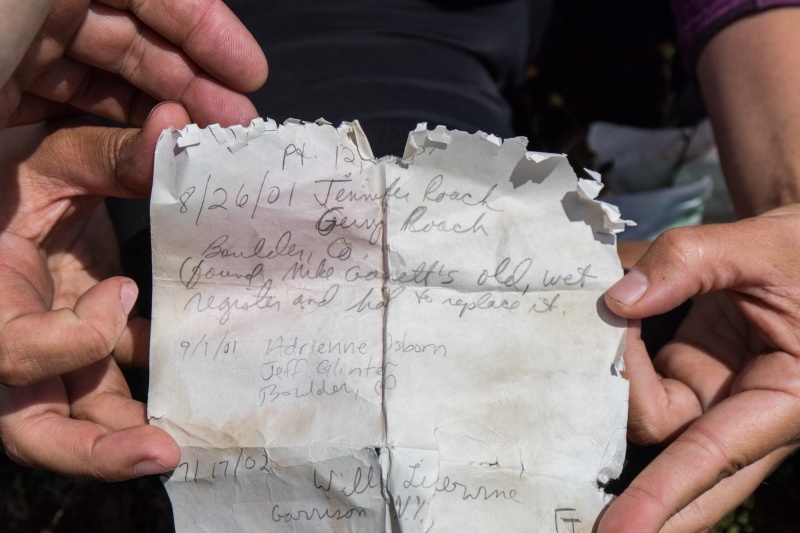 Pt. 12
8/26/01 Jennifer Roach
Gerry Roach
Boulder, Co.
(found Mike Garratt's old, wet
register and had to replace it
9/1/01 Adrienne Osborn
Jeff Glinter
Boulder, CO
7/17/02
Will
Garrison N.Y.